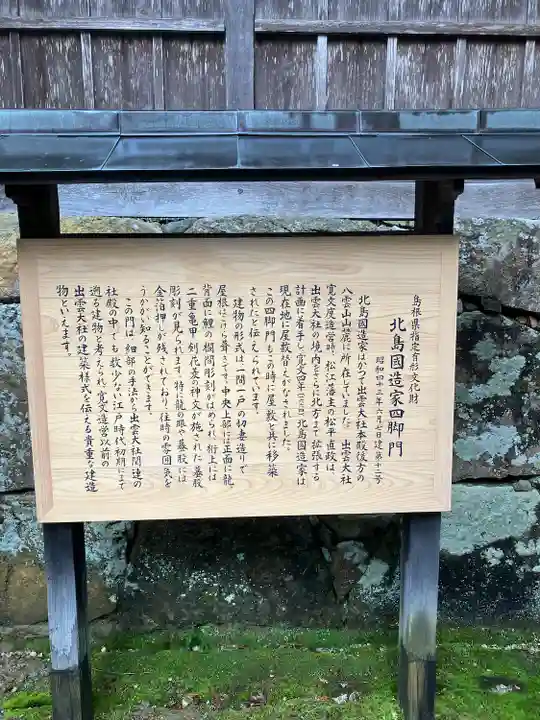 島根県指定有形文化財
北島國造家四脚門
昭和四十三年六月七日建第十二号
北島國造家はかつて出雲大社本殿後方の
八雲山山麓に所在していました。出雲大社
寛文度造営時、松江藩主の松平直政は、
出雲大社の境内をさらに北方まで拡張する
計画に着手し、寛文四年(一六六四)北島國造家は
現在地に屋敷替えがなされました。
この四脚門もこの時に屋敷と共に移築
されたと伝えられています。
建物の形式は一間一戸の切妻造りで
屋根はこけら葺です。中央上部には正面に龍
背面に鯉の欄間彫刻がはめられ、桁上には
二重亀甲剣花菱の神文の施された蟇股
彫刻が見られます。特に龍の眼や蟇股には
金箔押しが残されており、往時の雰囲気を
うかがい知ることができます。
この門は、細部の手法から出雲大社関連の
社殿の中でも数少ない江戸時代初期にまで
遡る建物と考えられ、寛文造営以前の
出雲大社の建築様式を伝える貴重な建造
物といえます。